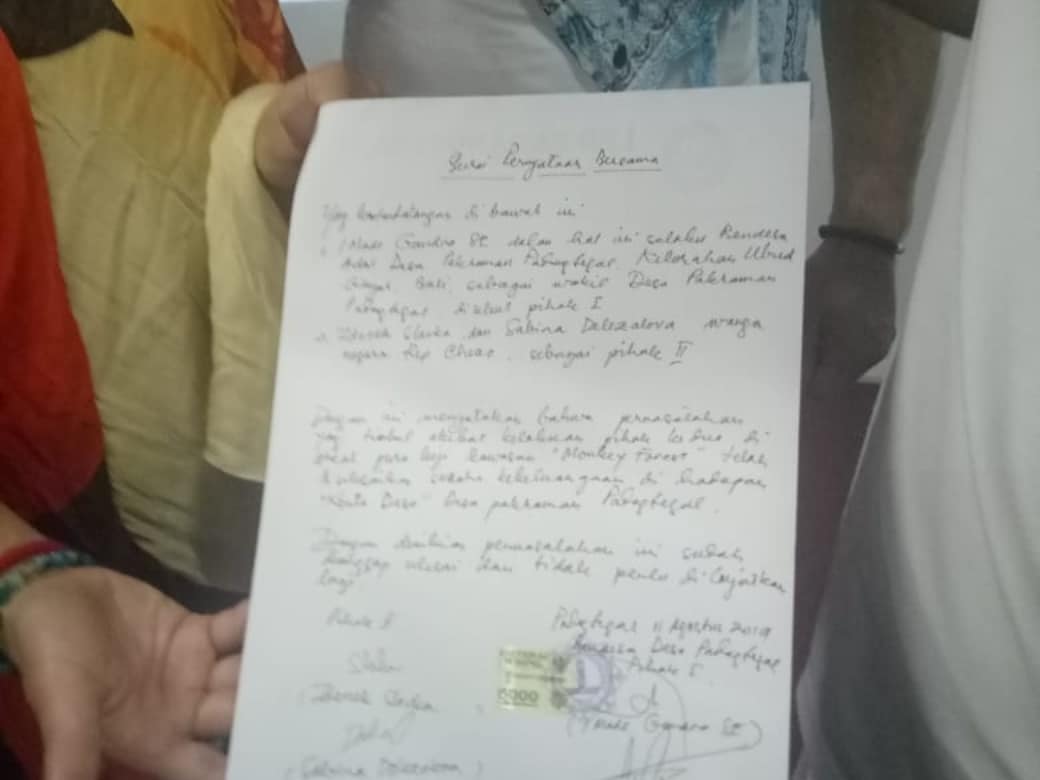 Surat Pernyataan Bersama
Yang bertandatangan di bawah ini
I Made Gandra SE dalam hal ini selaku Bendesa
Adat Desa Pakraman Padangtegal, Kelurahan Ubud
Gianyar Bali, sebagai wakil Desa Pakraman
Padangtegal disebut pihak I
Zdenek Slouka dan Sabina Dolezalova warga
negara Rep Cheko, sebagai pihak II
Dengan ini menyatakan bahwa permasalahan
yang timbul akibat kelakuan pihak kedua di
pura beji kawasan "Monkey Forest" telah
secara kekeluargaan di hadapan
Desa" Desa pakraman Padangtegal.
Dengan demikian permasalahan ini sudah
dianggap selesai dan tidak perlu di lanjutkan
lagi
Padangtegal 11 Agustus 2019
Bendesa Desa Padangtegal
Pihak I
Zdenek Slouka
6000
(I Made Gandra SE)
(Sabina Dolezalova)